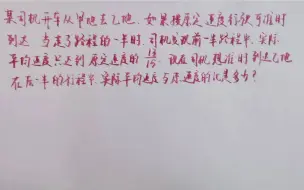 某司机开车从甲地去乙地，如果按原定速度行驶可准时
到达，当走了路程的一半时，司机发现前一半路程中，实际
平均速度只达到原定速度的 11/13．现在司机想准时到达乙地
在后一半的行程中，实际平均速度与原速度的比是多少？